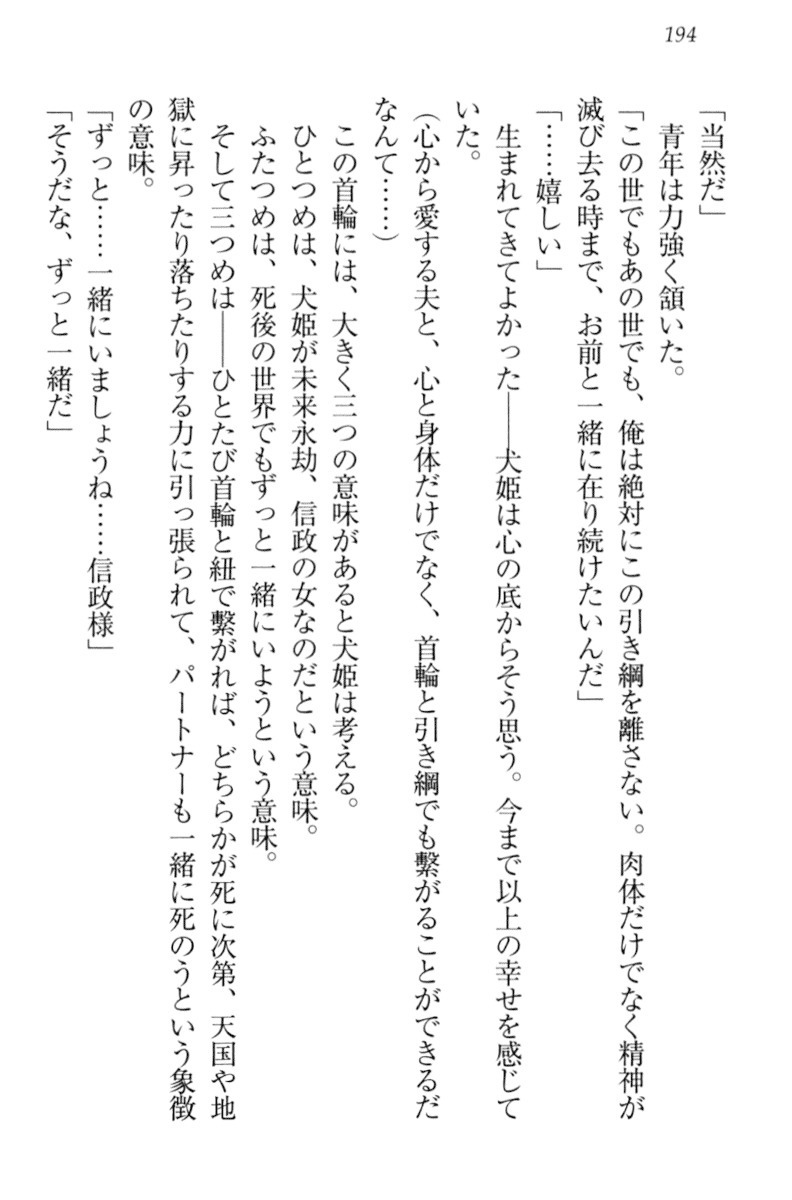 194
「当然だ」
青年は力強く頷いた。
「この世でもあの世でも、俺は絶対にこの引き綱を離さない。肉体だけでなく精神が
滅び去る時まで、お前と一緒に在り続けたいんだ」
「……嬉しい」
生まれてきてよかった――犬姫は心の底からそう思う。今まで以上の幸せを感じて
いた。
(心から愛する夫と、心と身体だけでなく、首輪と引き綱でも繋がることができるだ
なんて……)
この首輪には、大きく三つの意味があると犬姫は考える。
ひとつめは、犬姫が未来永劫、信政の女なのだという意味。
ふたつめは、死後の世界でもずっと一緒にいようという意味。
そして三つめは――ひとたび首輪と紐で繋がれば、どちらかが死に次第、天国や地
獄に昇ったり落ちたりする力に引っ張られて、パートナーも一緒に死のうという象徴
の意味。
「ずっと……一緒にいましょうね……信政様」
「そうだな、ずっと一緒だ」